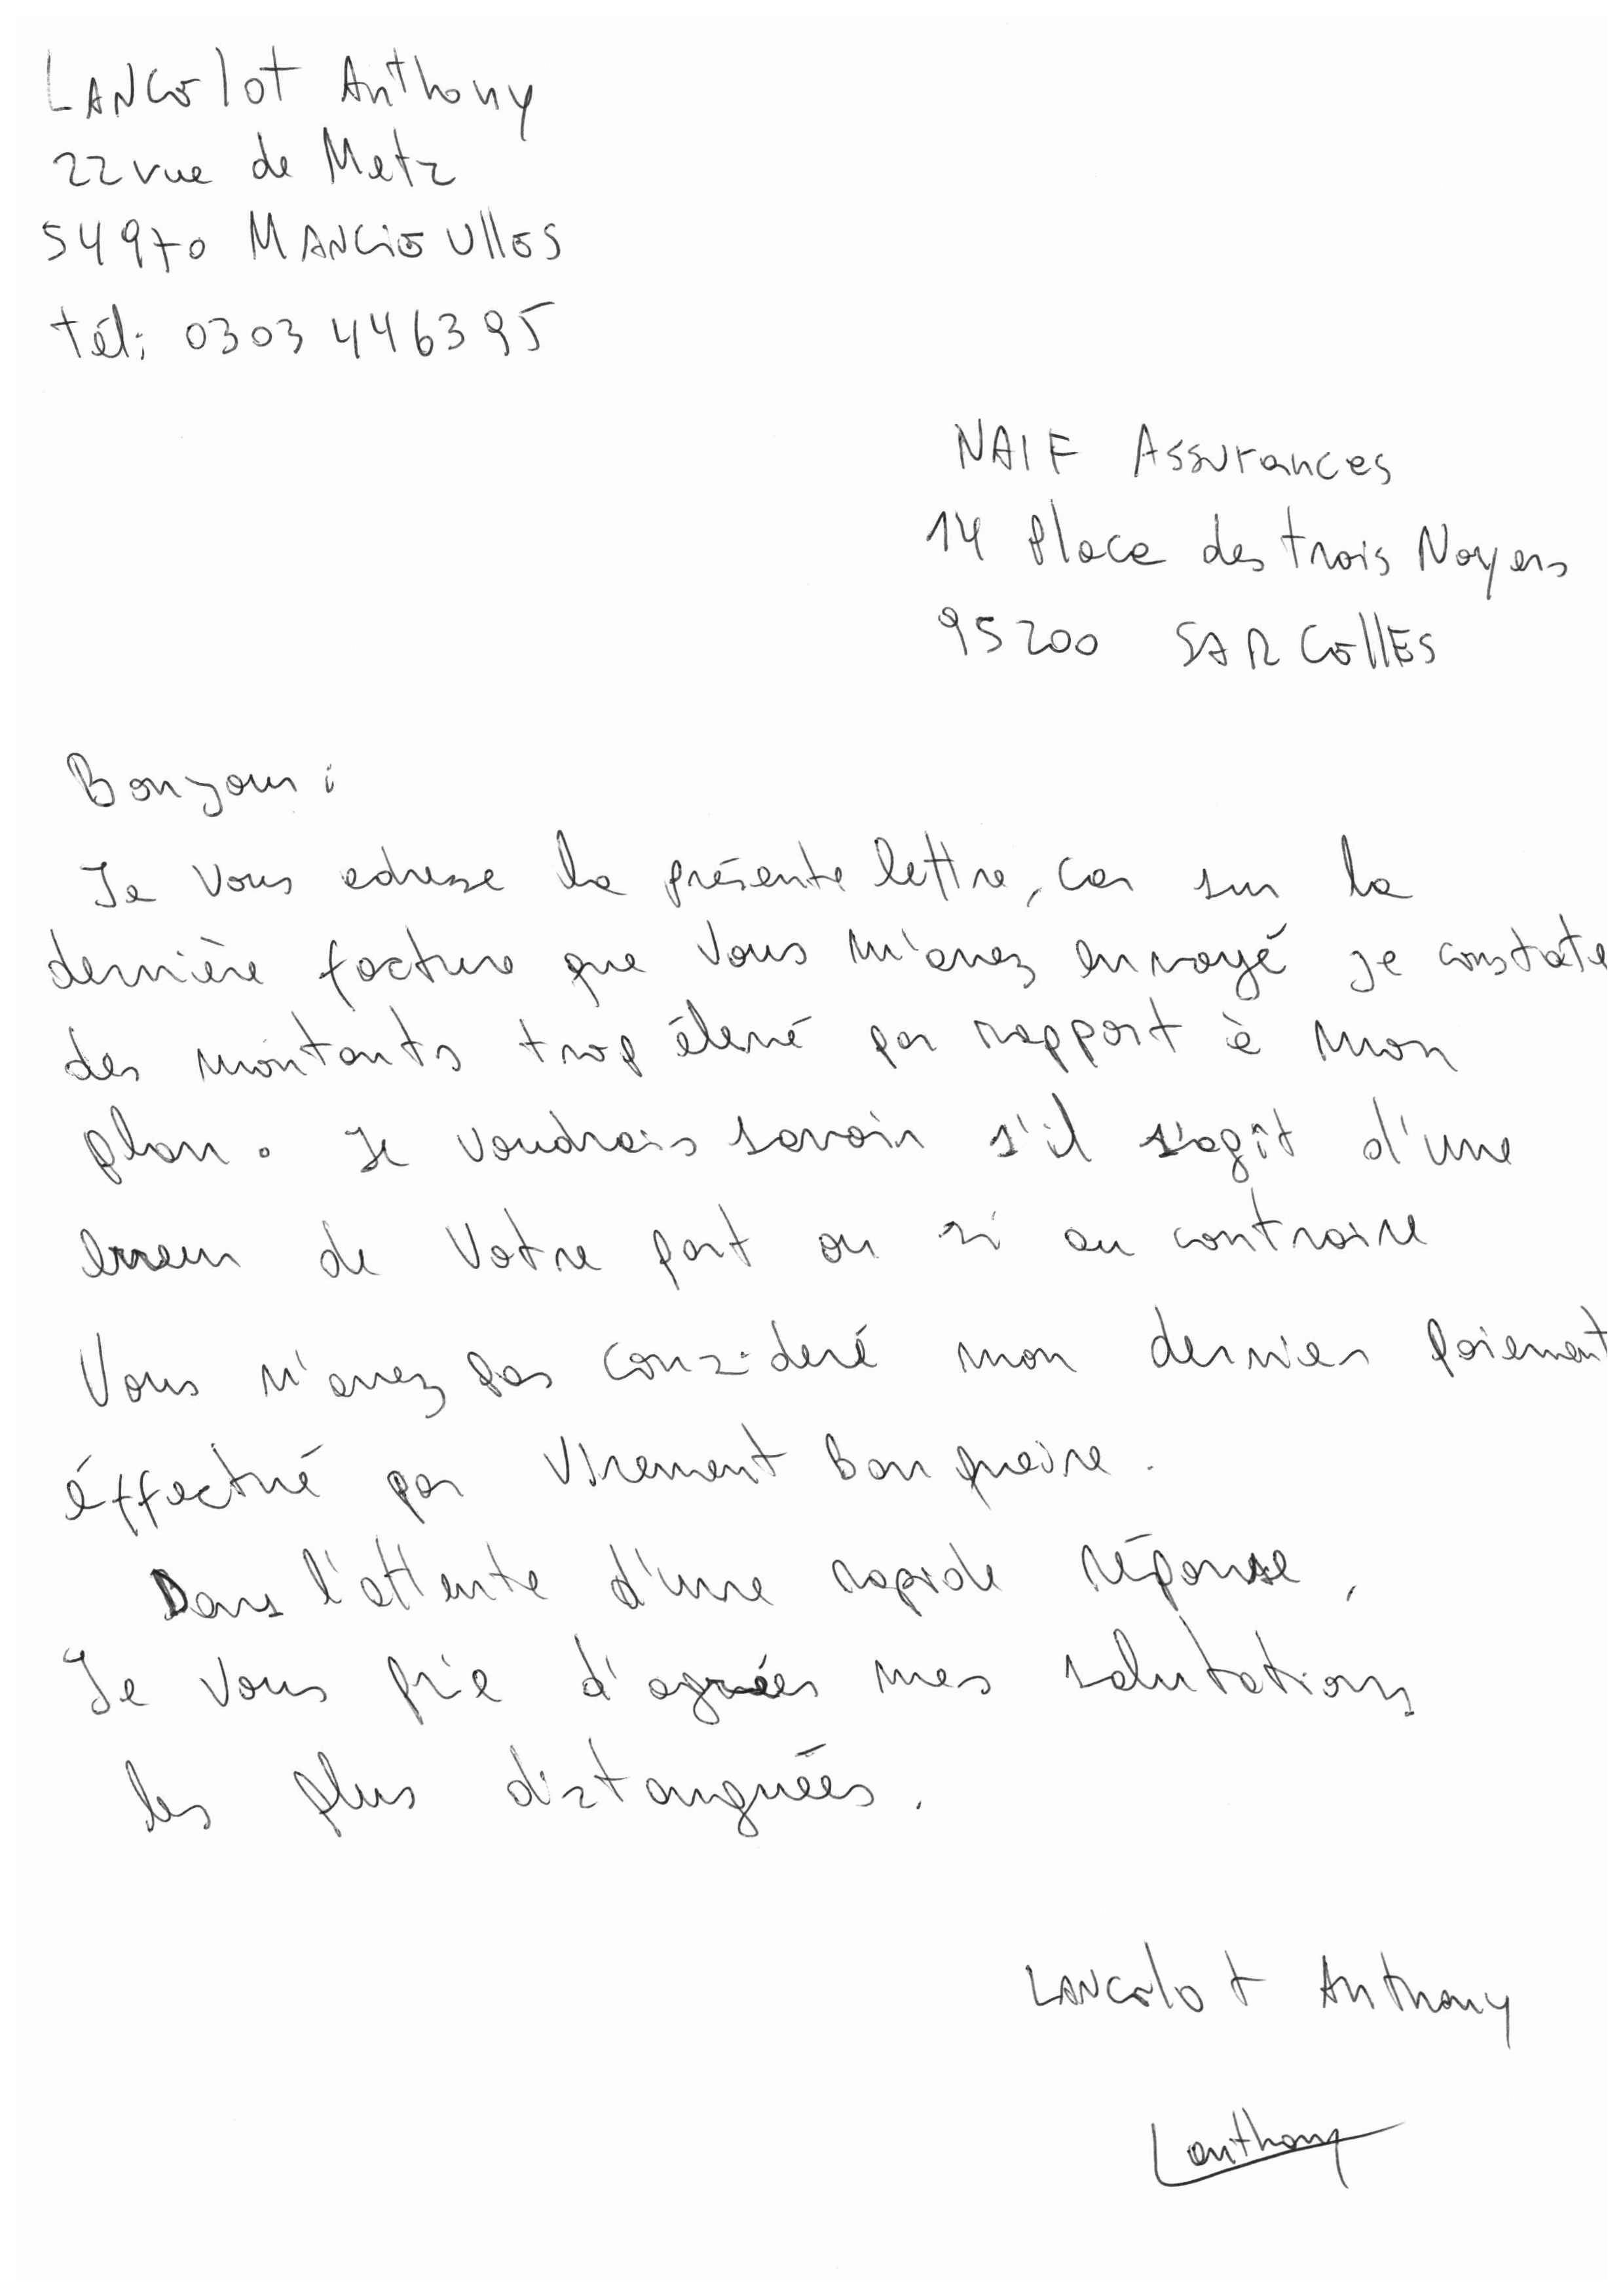 LANCElot Anthony
22 rue de Metz
54970 MANCIEUllES
tél: 0303446395
NAIF Assurances
14 Place des trois Noyers
95200 SARCEllES
Bonjour :
Je vous adresse la présente lettre, car sur la
dernière facture que vous m'avez envoyé je constate
des montants trop élevé par rapport à mon
plan. Je voudrais savoir s'il s'agît d'une
erreur de votre part ou si au contraire
Vous n'avez pas consideré mon dernier paiement
éffectué par virement banquaire.
Dans l'attente d'une rapide réponse,
Je vous prie d'agréer mes salutations
les plus distanguées.
LANCElot Anthony
Lanthony